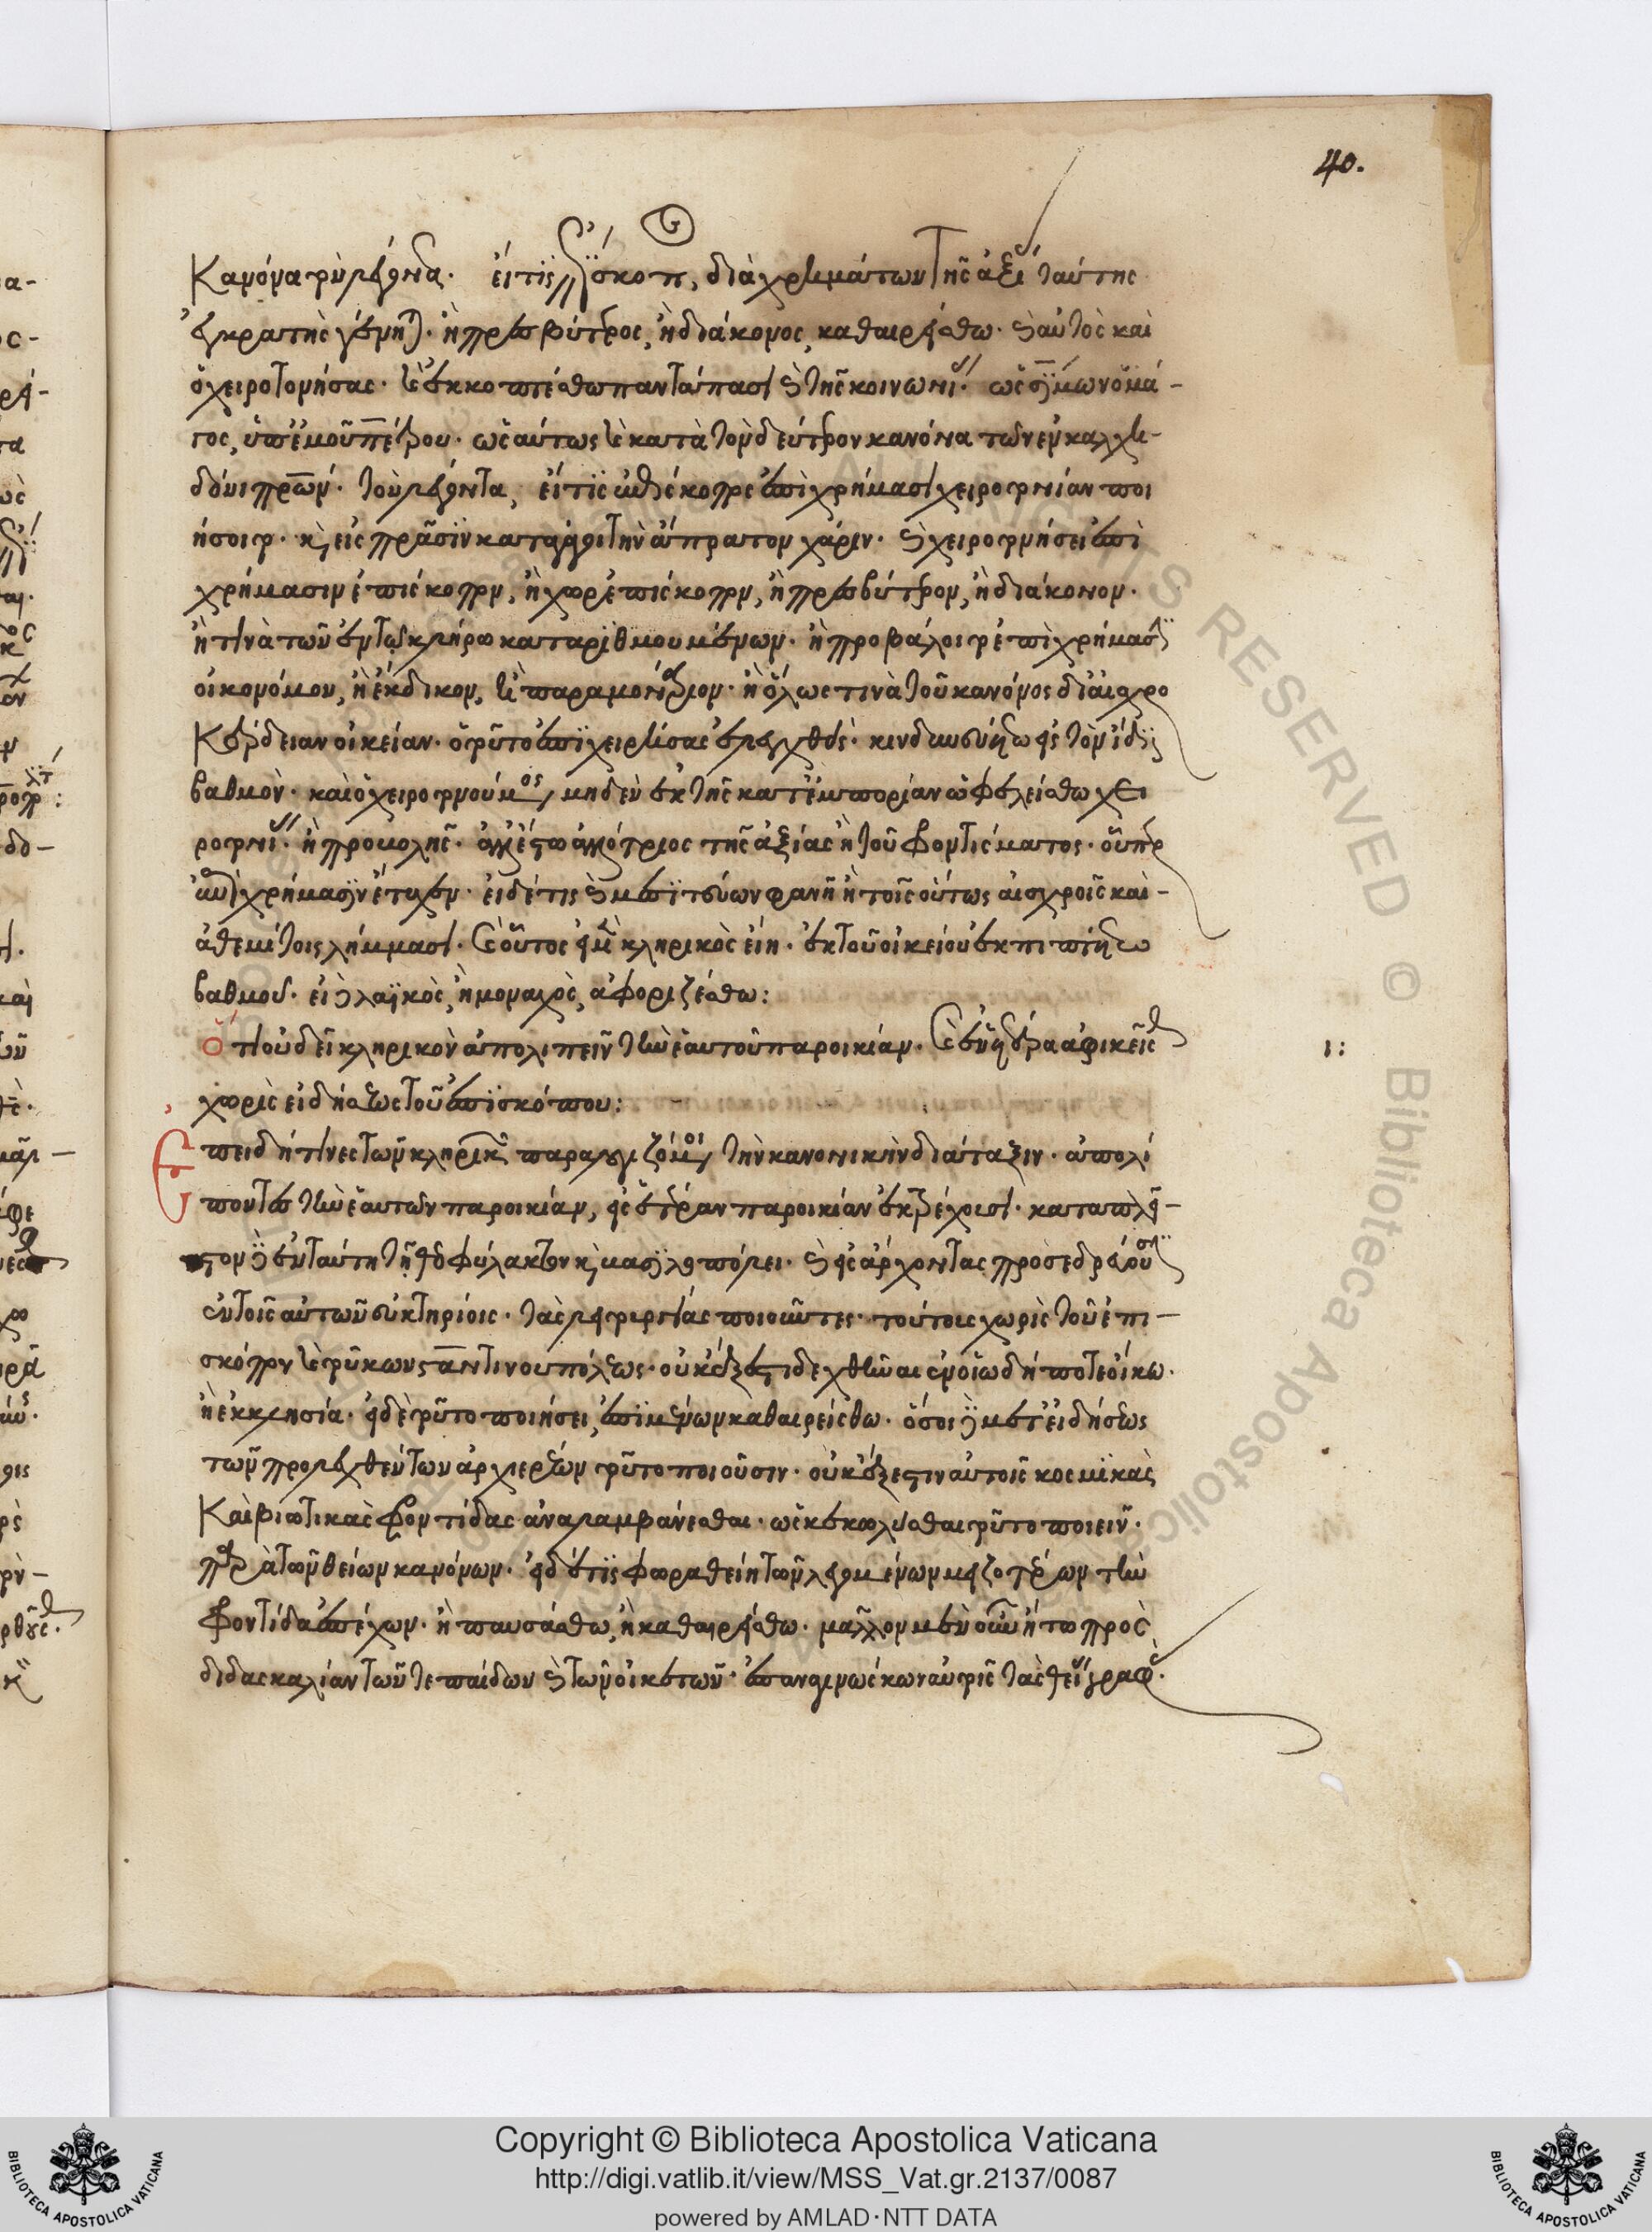 40.
κανόνα τὸν λέγοντα. εἴ τις ἐπίσκοπ, διὰ χρημάτων τῆς ἀξί ταύτης
ἐγκρατὴς γένητ. ἢ πρεσβύτερος, ἢ διάκονος, καθαιρείσθω. καὶ αὐτὸς καὶ
ὁ χειροτονήσας. καὶ ἐκκοπτέσθω παντάπασι καὶ τῆς κοινωνί. ὡς σίμων ὁ μά-
γος, ὑπ' ἐμοῦ πέτρου. ὡς αὕτως καὶ κατὰ τὸν δεύτερον κανόνα τῶν ἐν καλχη-
δόνι πρων. τὸν λέγοντα, εἴ τις ἐπίσκοπος ἐπὶ χρήμασι χειροτονίαν ποι
ήσοιτο. καὶ εἰς πρᾶσιν καταγάγοι τὴν ἄπρατον χάριν. καὶ χειροτονήσει ἐπὶ
χρήμασιν ἐπίσκοπον, ἢ χωρεπίσκοπον, ἢ πρεσβύτερον, ἢ διάκονον.
ἢ τινὰ τῶν ἐν τῷ κλήρω καταριθμουμένων. ἢ προβάλοιτο ἐπὶ χρήμασι
οἰκονόμον, ἢ ἔκδικον, ἢ παραμονάριον. ἢ ὅλως τινὰ τοῦ κανόνος δι' αἰσχρο
κέρδειαν οἰκείαν. ὁ τοῦτο ἐπιχειρήσας ἐλεγχθεὶς. κινδυνευέτω εἰς τὸν ἴδιον
βαθμὸν. καὶ ὁ χειροτονούμος μηδὲν ἐκ τῆς κατ' ἐμπορίαν ὠφελείσθω χει
ροτονί. ἢ προμολῆς. ἀλλ' ἔστω ἀλλότριος τῆς ἀξίας ἢ τοῦ φροντίσματος. οὗπερ
ἐπὶ χρήμασιν ἔτυχεν. εἰ δέ τις καὶ μεσιτεύων φανῆ ἢ τοῖς οὕτως αἰσχροῖς καὶ-
ἀθεμίτοις λήμμασι. καὶ οὗτος εἰ μὲν κληρικὸς εἴη. ἐκ τοῦ οἰκείου ἐκπιπτέτω
βαθμοῦ. εἰ δὲ λαϊκὸς, ἢ μοναχὸς, ἀφοριζέσθω:
ὅτι οὐ δεῖ κληρικὸν ἀπολιπεῖν τὴν ἑαυτοῦ παροικίαν. καὶ ἐν ἑτέρα ἀφικεῖσθ
χωρὶς εἰδήσεως τοῦ ἐπισκόπου:
1:
Ἐπειδή τινες τῶν κληρικ παραλογιζόμοι τὴν κανονικὴν διάταξιν. ἀπολι
ποντες τὴν ἑαυτῶν παροικίαν, εἰς ἑτέραν παροικίαν ἐκτρέχουσι. καταπλεῖ-
στον δὲ ἐν ταύτη τῆ θεοφυλάκτω καὶ βασιλίδι πόλει. καὶ εἰς ἄρχοντας προσεδρεύουσι
ἐν τοῖς αὐτῶν εὐκτηρίοις. τὰς λειτουργίας ποιοῦντες. τούτοις χωρὶς τοῦ ἐπι-
σκόπου καὶ τοῦ κωνσταντινουπόλεως. οὐκ ἔξεστι δεχθῆναι ἐν οἵω δήποτε οἴκω.
ἢ ἐκκλησία. εἰ δὲ τοῦτο ποιήσει, ἐπιμένων καθαιρείσθω. ὅσοι δὲ μετ' εἰδήσεως
τῶν προλεχθέντων ἀρχιερέων τοῦτο ποιοῦσιν. οὐκ ἔξεστιν αὐτοῖς κοσμικὰς
καὶ βιωτικὰς φροντίδας ἀναλαμβάνεσθαι. ὡς κεκωλύσθαι τοῦτο ποιεῖν.
παρὰ τῶν θείων κανόνων. εἰ δέ τις φωραθείη τῶν λεγομένων μειζοτέρων τὴν
φροντίδα ἐπέχων. ἢ παυσάσθω, ἢ καθαιρείσθω. μᾶλλον μὲν οὖν ἤτω πρὸς
διδασκαλίαν τῶν τε παίδων καὶ τῶν οἰκετῶν. ἐπαναγινώσκων αὐτοῖς τὰς θεί γραφ.
RIGHTS RESERVED © Biblioteca Apostolica
Copyright © Biblioteca Apostolica Vaticana
http://digi.vatlib.it/view/MSS_Vat.gr.2137/0087
powered by AMLAD·NTT DATA
BIBLIOTECA APOSTOLICA VATICANA
BIBLIOTECA APOSTOLICA VATICANA